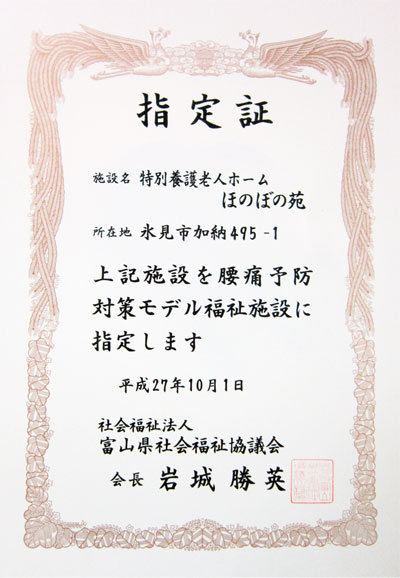 指定証
施設名 特別養護老人ホーム
ほのぼの苑
所在地 氷見市加納495-1
上記施設を腰痛予防
対策モデル福祉施設に
指定します
平成27年10月1日
社会福祉法人
富山県社会福祉協議会
会長 岩城勝英